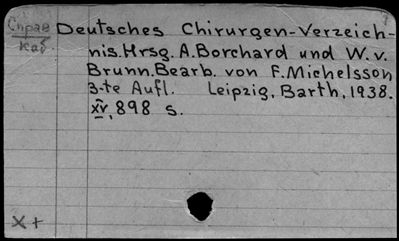 Справ
каб
Deutsches Chirurgen-Verzeich-
nis. Hrsg. A. Borchard und W. v.
Brunn. Bearb. von F. Michelsson
3-te Aufl. Leipzig, Barth, 1938.
XV, 898 s.
X+